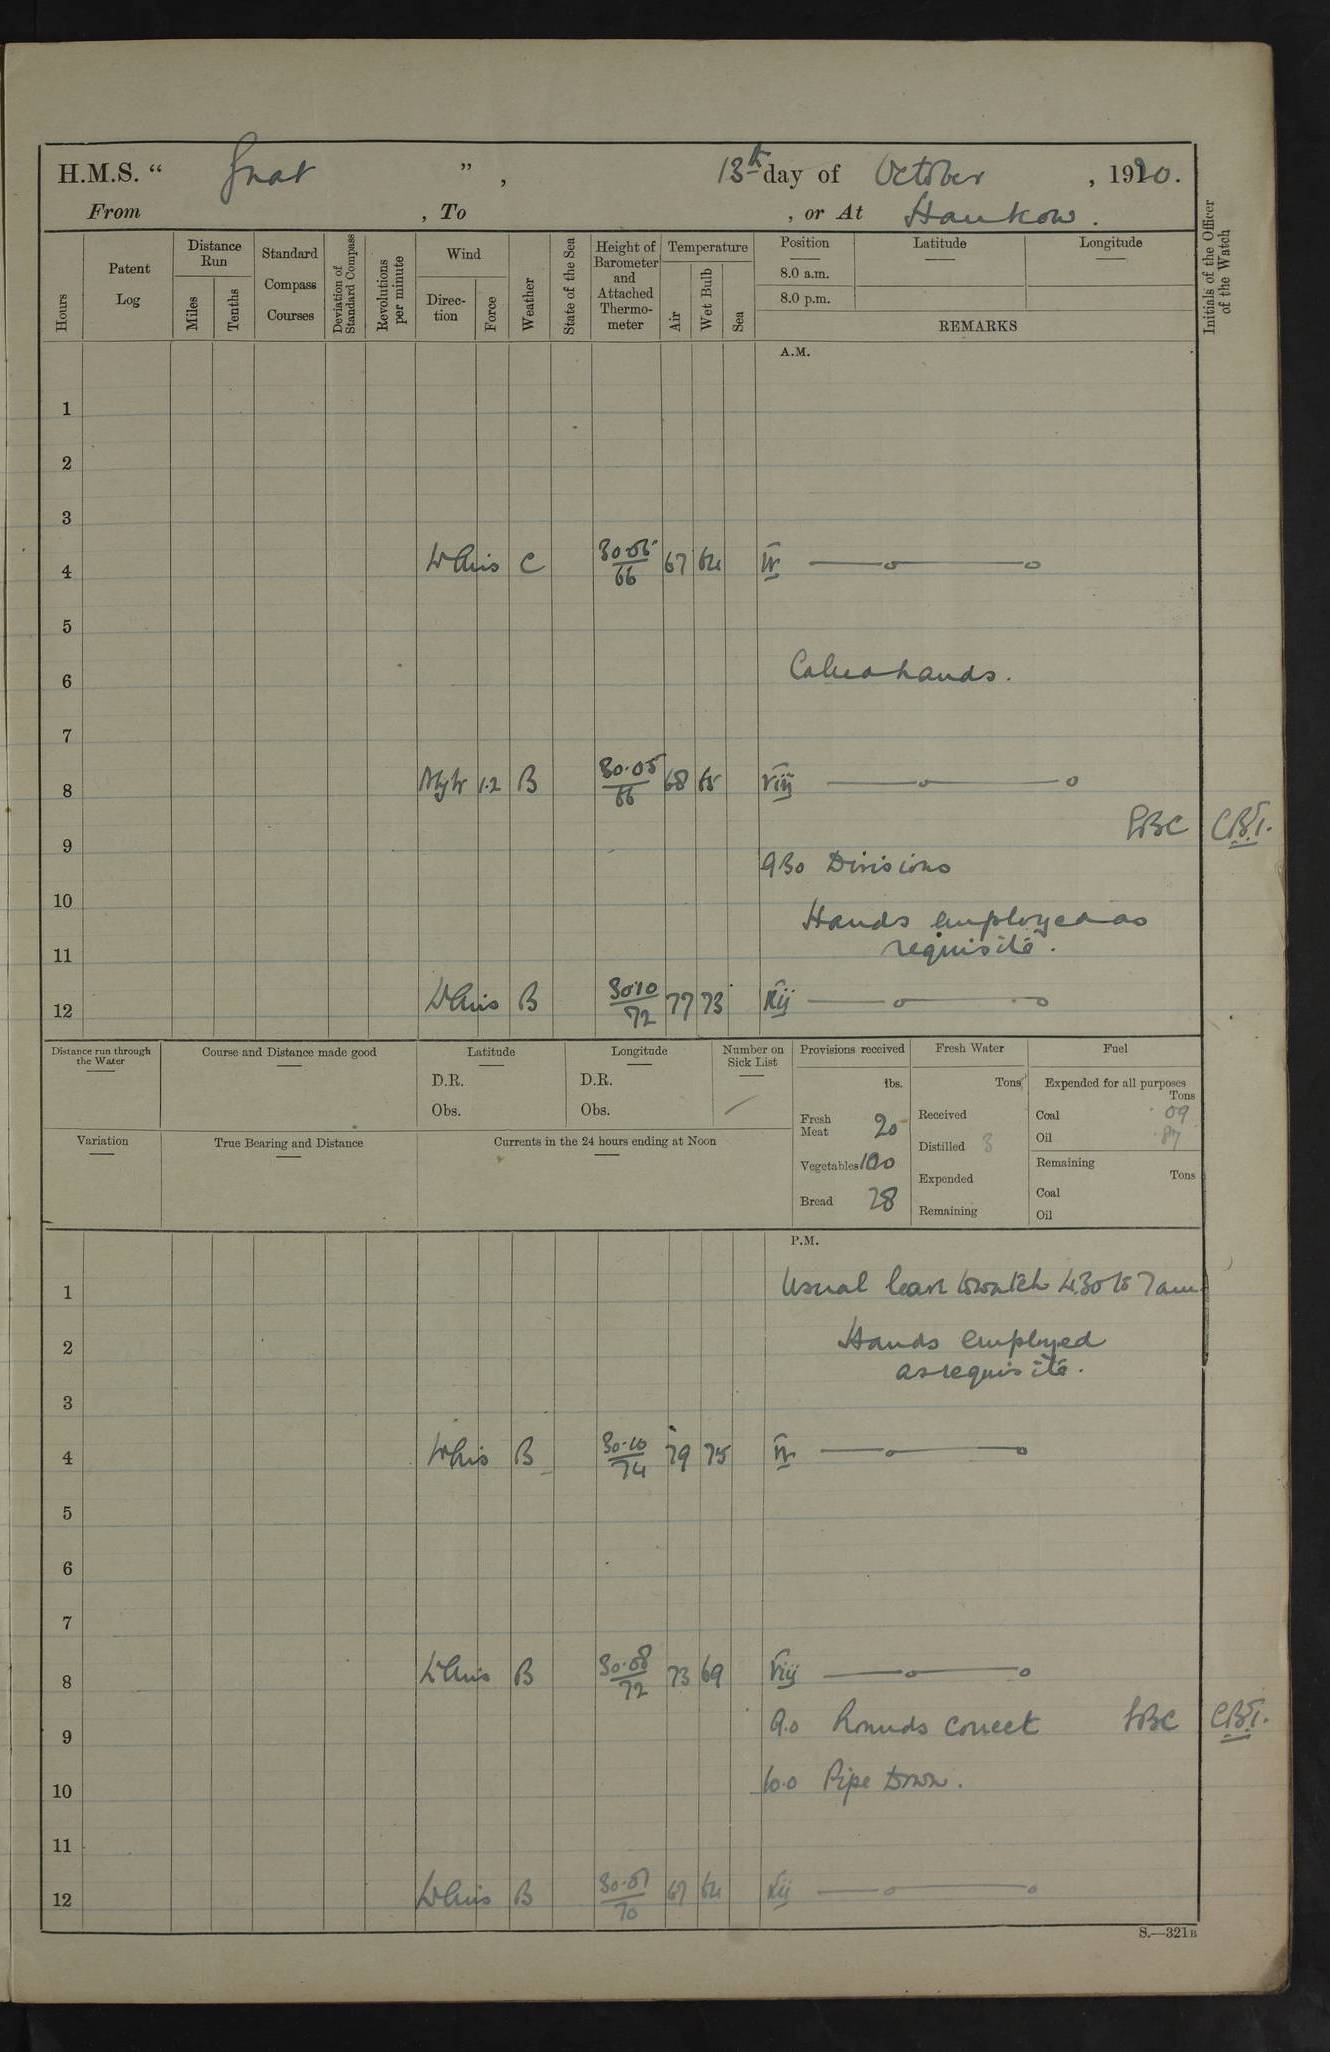 H.M.S. “ Gnat ” , 13th day of October , 1920.
From , To , or At Hankow.
Hours
Patent Log
Distance Run
Miles
Tenths
Standard Compass Courses
Deviation of Standard Compass
Revolutions per minute
Wind
Direction
Force
Weather
State of the Sea
Height of Barometer and Attached Thermometer
Temperature
Air
Wet Bulb
Sea
Position Latitude Longitude
8.0 a.m.
8.0 p.m.
REMARKS
Initials of the Officer of the Watch
A.M.
1
2
3
4 C 30.05/66 67 64 IV
5
6 Called hands.
7
8 1.2 B 30.05/66 68 65 VIII
CBT.
9
930 Divisions
10 Hands employed as
11 requisite.
12 B 30.10/72 77 73 XII
Distance run through the Water
Course and Distance made good
Latitude
D.R.
Obs.
Longitude
D.R.
Obs.
Number on Sick List
Provisions received
lbs.
Fresh Meat 20
Vegetables 100
Bread 28
Fresh Water
Tons
Received
Distilled 3
Expended
Remaining
Fuel
Expended for all purposes
Tons
Coal 09
Oil .87
Remaining
Tons
Coal
Oil
Variation
True Bearing and Distance
Currents in the 24 hours ending at Noon
P.M.
1 Usual leave to watch 4.30 to 7am
2 Hands employed
as requisite.
3
4 B 30.10/74 79 75 IV
5
6
7
8 B 30.08/72 73 69 VIII
9 9.0 Rounds correct CBT.
10 10.0 Pipe Down.
11
12 B 67 64 XII
S.—321B